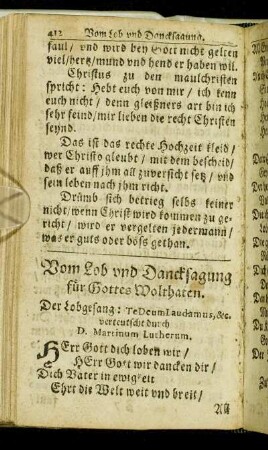 412 Vom Lob vnd Dancksagung.
faul / vnd wird bey Gott nicht gelten
viel / hertz / mund vnd hend er haben wil.
Christus zu den maulchristen
spricht: Hebt euch von mir / ich kenn
euch nicht / denn gleißners art bin ich
sehr feind / mir lieben die recht Christen
seynd.
Das ist das rechte Hochzeit kleid /
wer Christo gleubt / mit dem bescheid /
daß er auff jhm all zuversicht setz / vnd
sein leben nach jhm richt.
Drümb sich betrieg selbs keiner
nicht / wenn Christ wird kommen zu ge-
richt / wird er vergelten jedermann /
was er guts oder böß gethan.
Vom Lob vnd Dancksagung
für Gottes Wolthaten.
Der Lobgesang: Te Deum laudamus, &c.
verteutscht durch
D. Martinum Lutherum.
HErr Gott dich loben wir /
HErr Gott wir dancken dir /
Dich Vater in ewigkeit
Ehrt die Welt weit vnd breit /
All